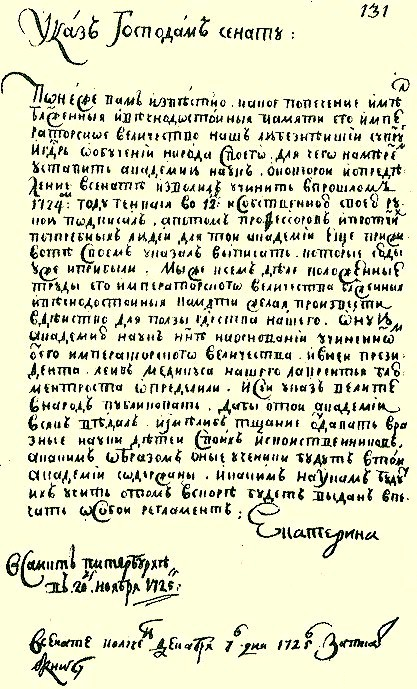 131
Указъ Господамъ сенату:
Понеже вамъ известно. какое попечение имѣлъ
блаженныя ивѣчнодостойныя памяти его импе
раторское величество нашъ любезнѣишіи супругъ
игдрь ообучении народа своего. для чего намѣре
уставить академию наукъ. окоторои иопредѣ
ление всенатѣ изволилъ учинить впрошломъ
1724м году генваря во 12 исобственнои своеи ру
кои подписалъ. апотомъ профессоровъ ипротч
потребныхъ людеи для тои академіи еще прижи
вотѣ своемъ указалъ выписать. которые сюды
уже иприбыли. Мы же всемъ дѣле положенные
труды его императорского величества блаженныя
ивѣчнодостоиныя памяти желая произвести
вдѣиство для ползы гдрства нашего. ону
академию наукъ ннѣ наосновании учиненномъ
его императорского величества. ивнеи прези
дента. леибъ медикуса нашего лаврентья блю
ментроста опредѣлили. Исеи указъ велите
внародъ публиковать. дабы отои академіи
всякъ вѣдалъ. иимѣлибъ тщание одавать вра
зные науки дѣтеи своихъ исвоиственниковъ.
акакимъ образомъ оные ученики будутъ втои
академіи содержаны. икакимъ наукамъ будутъ
ихъ учить отомъ вскоре будетъ выданъ впе
чать особои регламентъ:
Екатерина
Всанктъ питербурхѣ
въ 20 ноября 1725:
Всенате получе декабря 7 дни 1725